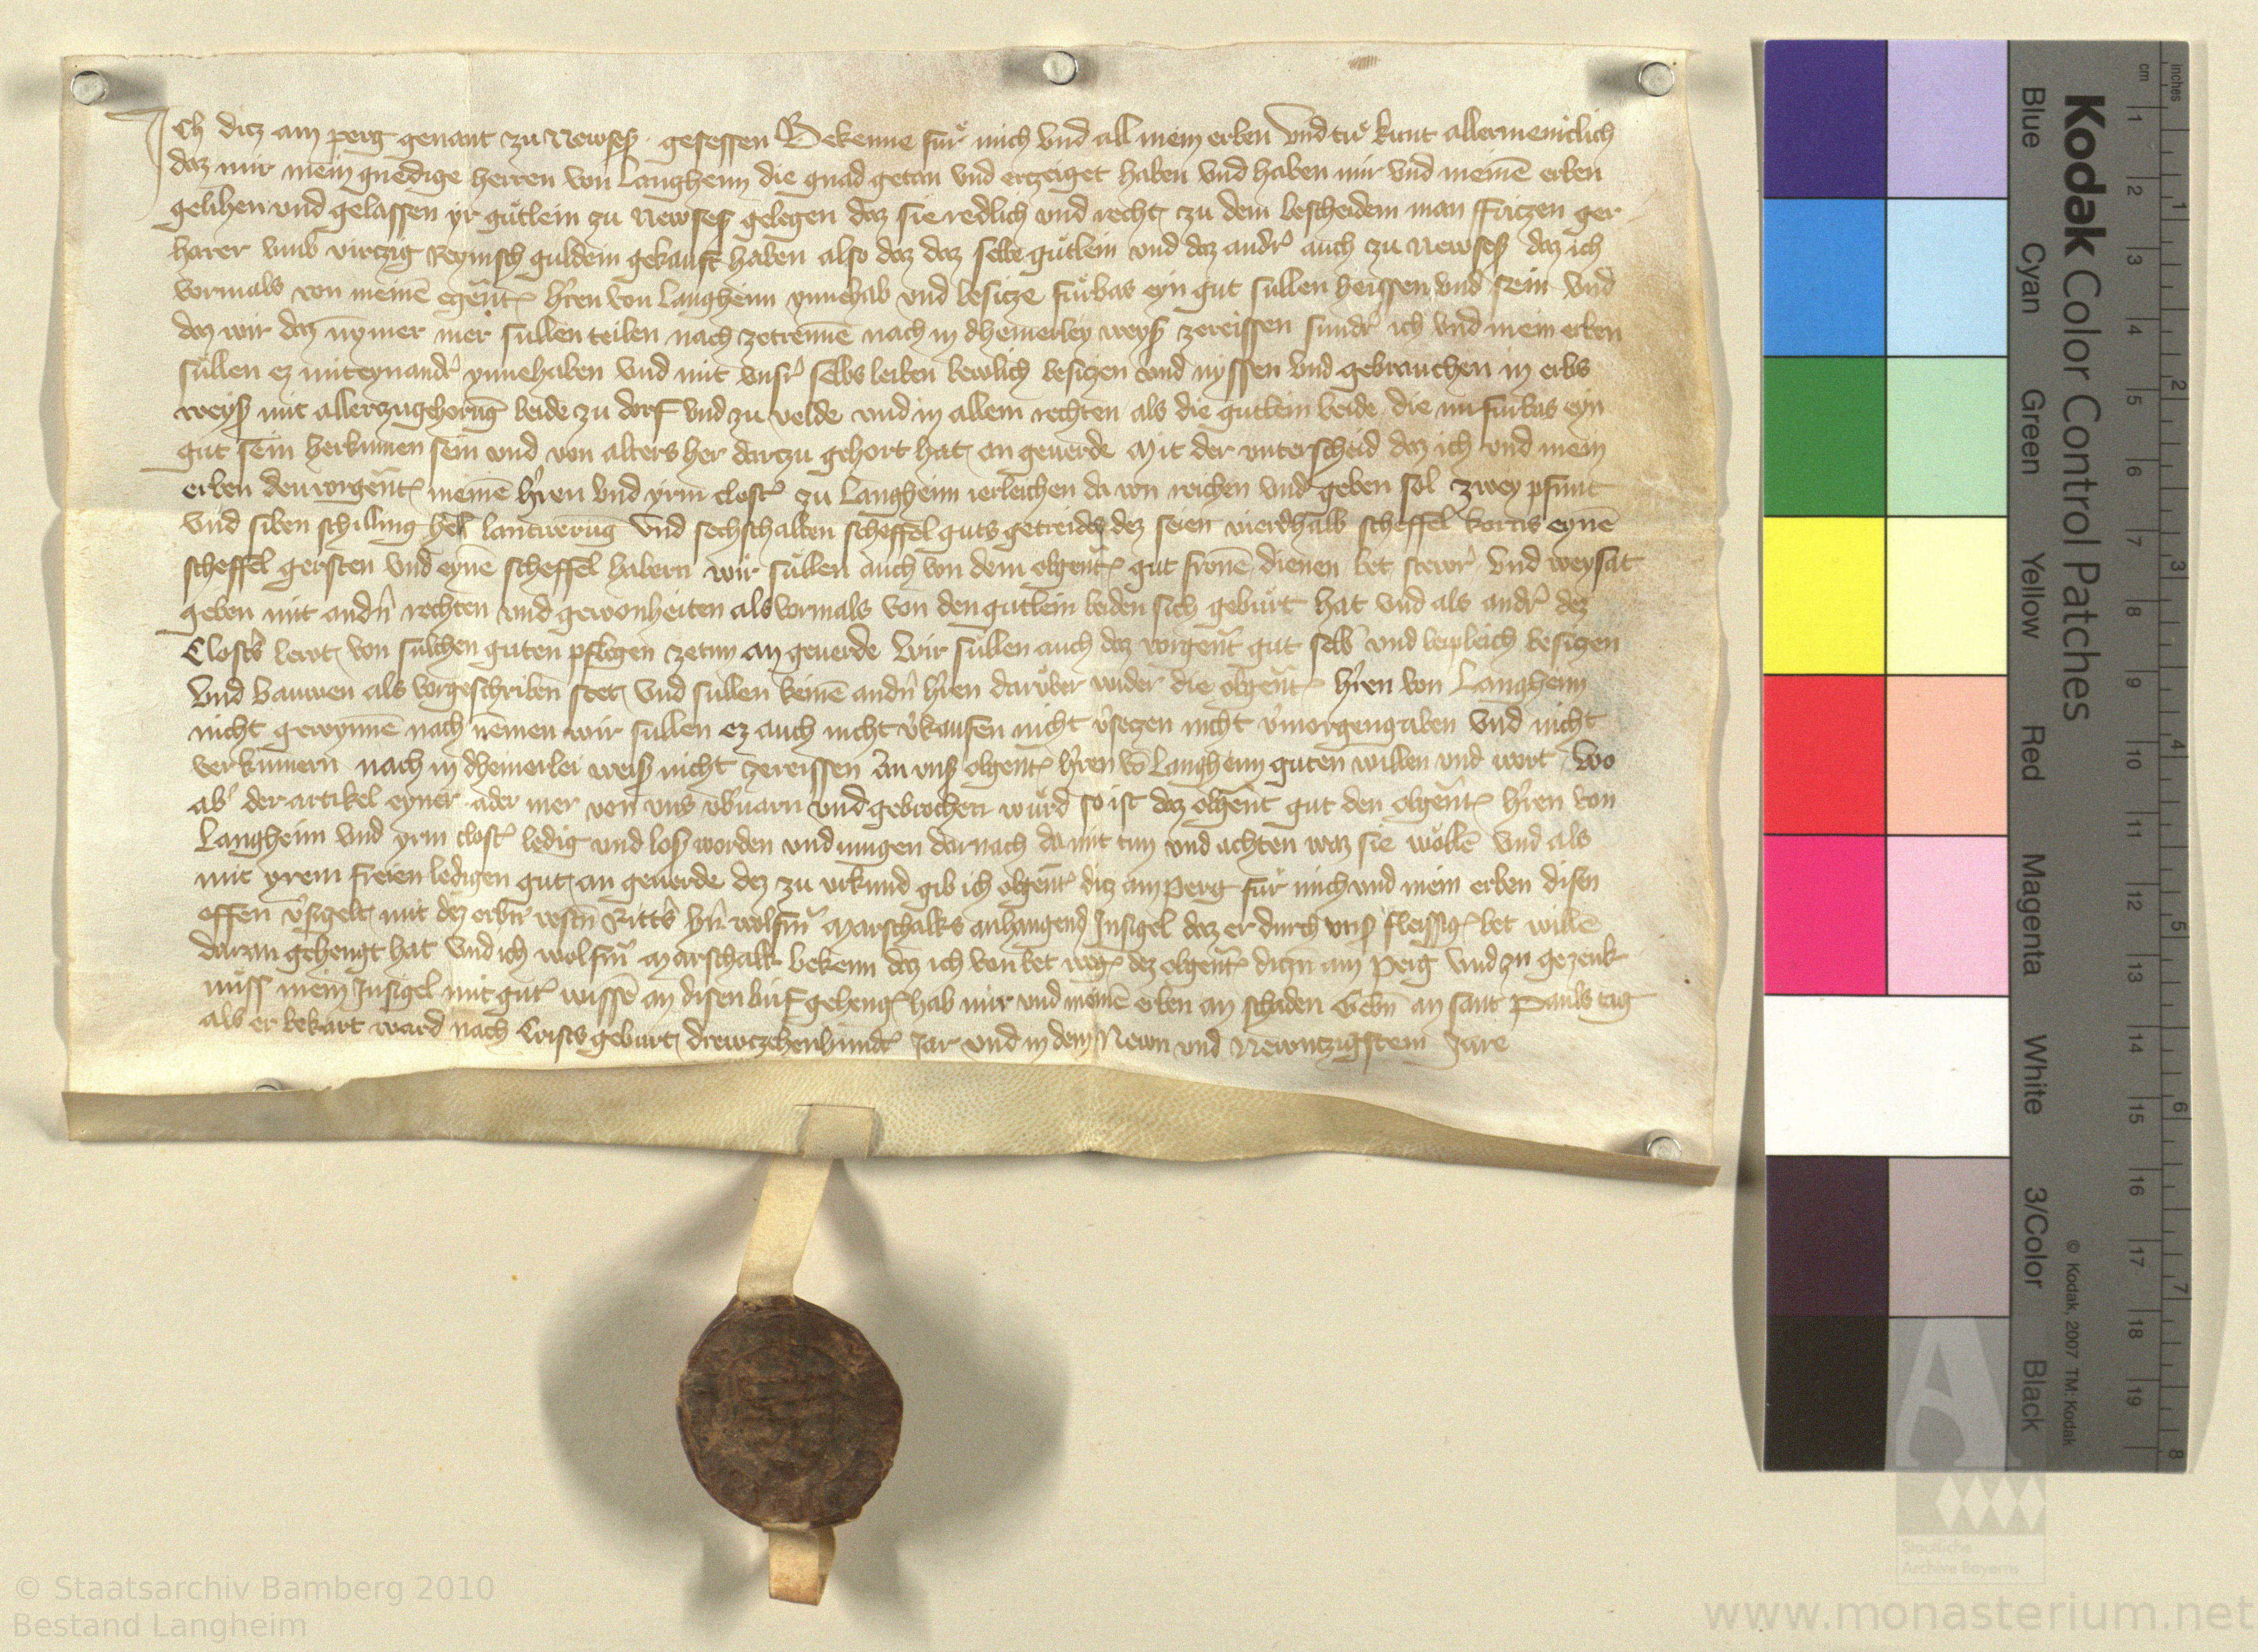 Ich dicz am perg genant zu Newseß gesessen Bekenne für mich vnd all mein erben vnd tů kunt allermeniclich
daz mir mein gnedige herren von Langheim die gnad getan vnd ertzeiget haben vnd haben mir vnd meinē erben
gelihen vnd gelassen yr gütlein zu Newseß gelegen daz sie redlich vnd recht zu dem bescheidem man ffriczen ger
harer vmb virczig Reynisch guldein gekauft haben also daz daz selbe gütlein vnd daz andr' auch zu Newseß daz ich
vormals von meinē egen̄t' h'ren von Langheim ynnehab vnd besicze fürbas eyn gut süllen heissen vnd sein vnd
daz wir daz nymer mer süllen teilen nach zetrennē nach in dheinerley weyß zereissen sundr' ich vnd mein erben
süllen ez miteynandr' ynnehaben vnd mit vnsr' selbs leiben bewlich besiczen vnd nyssen vnd gebrauchen in erbs
weyß mit aller zugehorūg beide zu dorf vnd zu velde vnd in allem rechten als die gütlein beide die nu fürbas eyn
gut sein herkumen sein vnd von alters her darzu gehort hat an geuerde Mit der vnterscheid daz ich vnd mein
erben den vorgen̄t' meinē h'ren vnd yrm clost' zu Langheim ierleichen da von reichen vnd geben sol zwey pfunt
vnd siben schilling hell' lantwerūg vnd sechshalben scheffel guts getreides dez seien vierdhalb scheffel korns eynē
scheffel gersten vnd eynē scheffel habern wir süllen auch von dem obgen̄t' gut fronē dienen bet stewr vnd weysat
geben mit andn' rechten vnd gewonheiten als vormals von den gütlein beiden sich gebürt hat vnd als andr' dez
Closts' lewt von sulchen guten pflegen zetun an geuerde Wir süllen auch daz vorgen̄t gut selb' vnd leipleich besiczen
vnd bauwen als vorgeschriben stet vnd süllen keinē andn' h'ren darüber wider die obgen̄t' h'ren von Langheim
nicht gewynnē nach nemen wir süllen ez auch nicht v'kaufen nicht v'seczen nicht v'morgengaben vnd nicht
verkümern nach in dheinerlei weiß nicht zereissen ān vnß obgen̄t' h'ren vō Langheim guten willen vnd wort Wo
ab' der artikel eyner ader mer von vns vb'uarn vnd gebrochen würd so ist daz obgen̄t gut den obgen̄t' h'ren von
Langheim vnd yrm clost' ledig vnd loß worden vnd mügen darnach damit tun vnd achten waz sie wöllē vnd als
mit yrem freien ledigen gut an geuerde dez zu vrkund gib ich obgen̄t' dicz am perg für mich vnd mein erben disen
offen v'sigelt mit dez erbn' vestn' Ritts' h'n wolfm' Marschalks anhangend Insigel daz er durch vnß fleissig' bet willē
daran gehengt hat vnd ich wolfm' Marschalk bekenn daz ich von bet weg' dez obgen̄t' diczn am perg vnd zu gezeuk
nüss mein Insigel mit gut' wissē an disen brif gehengt hab mir vnd meinē erben an schaden Gebn̄ an sant Pauls tag
als er bekart ward nach Crists geburt drewczehenhundt' Jar vnd in dem Newn vnd Newnczigstem Jare
Kodak Color Control Patches
Blue Cyan Green Yellow Red Magenta White 3/Color Black
© Kodak, 2007 TM: Kodak
cm 1 2 3 4 5 6 7 8 9 10 11 12 13 14 15 16 17 18 19
inches 1 2 3 4 5 6 7 8
A
Staatliche
Archive Bayerns
© Staatsarchiv Bamberg 2010
Bestand Langheim
www.monasterium.net